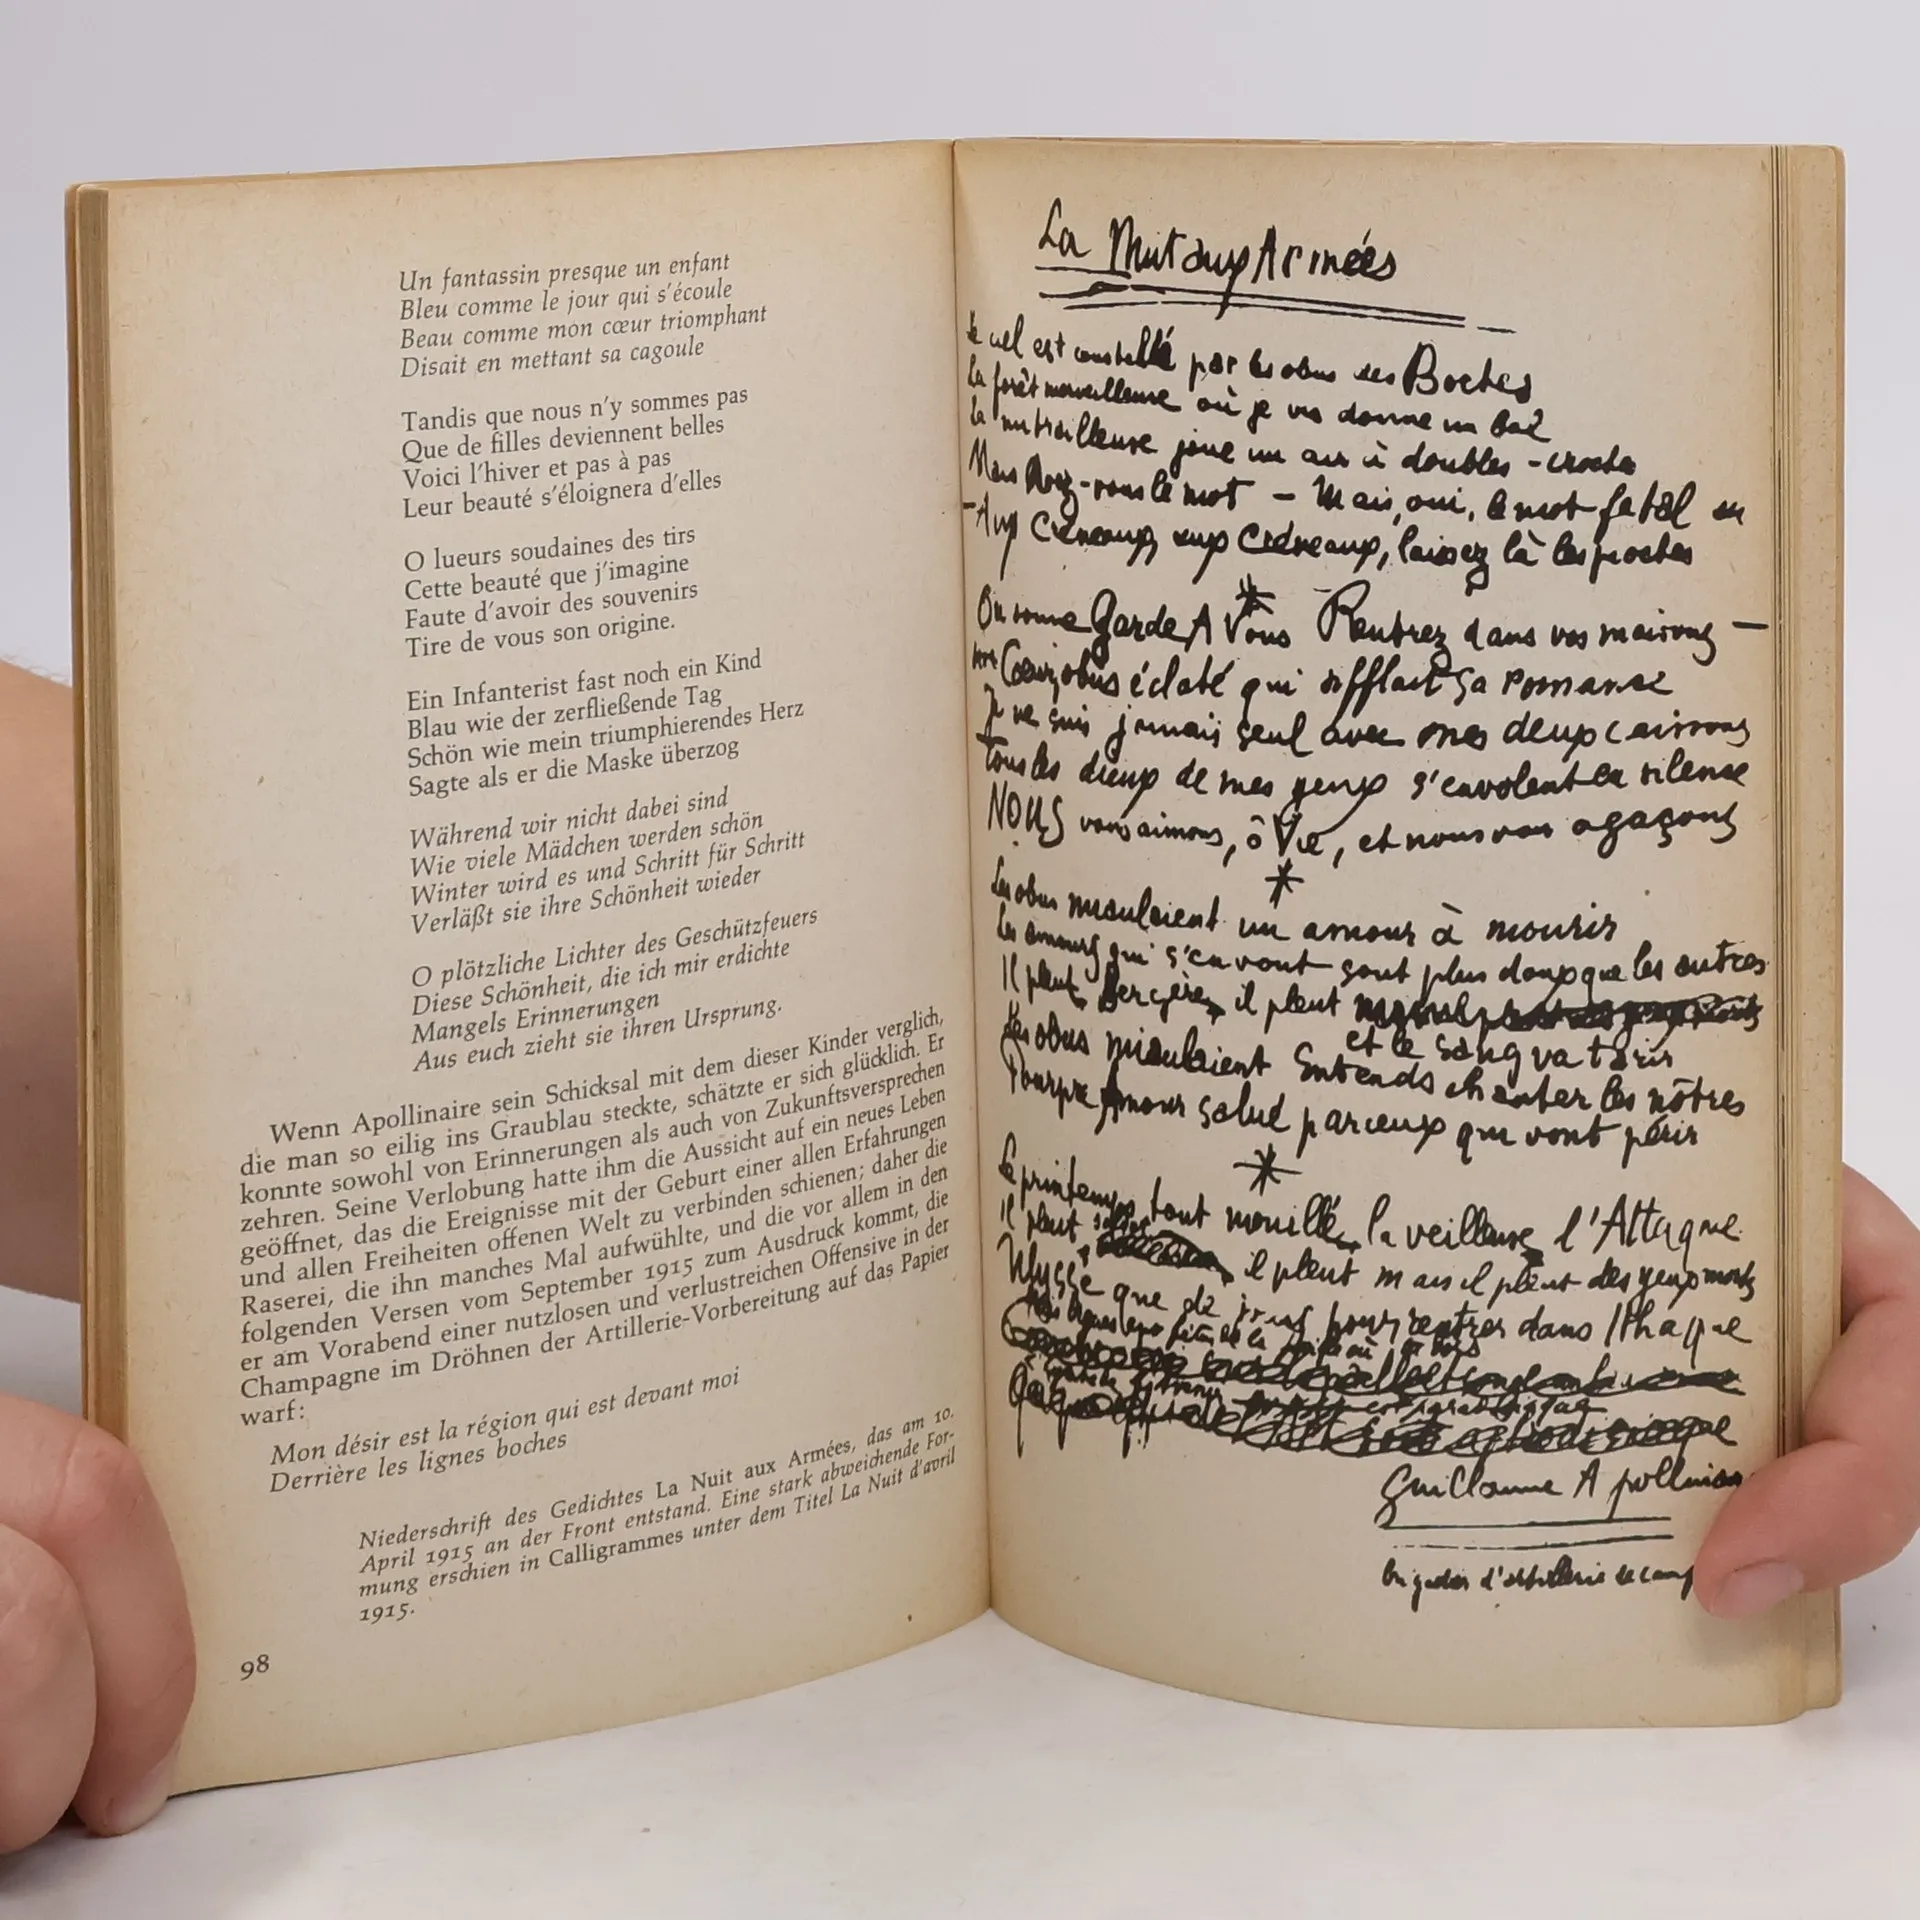 Un fantassin presque un enfant
Bleu comme le jour qui s'écoule
Beau comme mon cœur triomphant
Disait en mettant sa cagoule
Tandis que nous n'y sommes pas
Que de filles deviennent belles
Voici l'hiver et pas à pas
Leur beauté s'éloignera d'elles
O lueurs soudaines des tirs
Cette beauté que j'imagine
Faute d'avoir des souvenirs
Tire de vous son origine.
Ein Infanterist fast noch ein Kind
Blau wie der zerfließende Tag
Schön wie mein triumphierendes Herz
Sagte als er die Maske überzog
Während wir nicht dabei sind
Wie viele Mädchen werden schön
Winter wird es und Schritt für Schritt
Verläßt sie ihre Schönheit wieder
O plötzliche Lichter des Geschützfeuers
Diese Schönheit, die ich mir erdichte
Mangels Erinnerungen
Aus euch zieht sie ihren Ursprung.
Wenn Apollinaire sein Schicksal mit dem dieser Kinder verglich,
die man so eilig ins Graublau steckte, schätzte er sich glücklich. Er
konnte sowohl von Erinnerungen als auch von Zukunftsversprechen
zehren. Seine Verlobung hatte ihm die Aussicht auf ein neues Leben
geöffnet, das die Ereignisse mit der Geburt einer allen Erfahrungen
und allen Freiheiten offenen Welt zu verbinden schienen; daher die
Raserei, die ihn manches Mal aufwühlte, und die vor allem in den
folgenden Versen vom September 1915 zum Ausdruck kommt, die
er am Vorabend einer nutzlosen und verlustreichen Offensive in der
Champagne im Dröhnen der Artillerie-Vorbereitung auf das Papier
warf:
Mon désir est la région qui est devant moi
Derrière les lignes boches
Niederschrift des Gedichtes La Nuit aux Armées, das am 10.
April 1915 an der Front entstand. Eine stark abweichende For-
mung erschien in Calligrammes unter dem Titel La Nuit d'avril
1915.
98
La Nuit aux Armées
Le ciel est constellé par les obus des Boches
La forêt merveilleuse où je vis donne un bal
La mitrailleuse joue un air à doubles-croches
Mais Avez-vous le mot - Mais, oui, le mot fatal
-Aux Créneaux, aux Créneaux, laissez là les pioches
*
On sonne Garde A Vous Rentrez dans vos maisons -
Cœur, obus éclaté qui sifflait sa romance
Je ne suis jamais seul avec mes deux caissons
Tous les dieux de mes yeux s'envolent en silence
NOUS vous aimons, ô Vie, et nous vous agaçons
*
Les obus miaulaient un amour à mourir
Les amours qui s'en vont sont plus doux que les autres
Il pleut, Bergère, il pleut
et le sang va tarir
Les obus miaulaient Entends chanter les nôtres
Pourpre Amour salué par ceux qui vont périr
*
Le printemps tout mouillé, la veilleuse, l'Attaque
Il pleut il pleut mais il pleut des yeux morts
Ulysse que de jours pour rentrer dans Ithaque
Guillaume Apollinaire
brigadier d'artillerie de camp